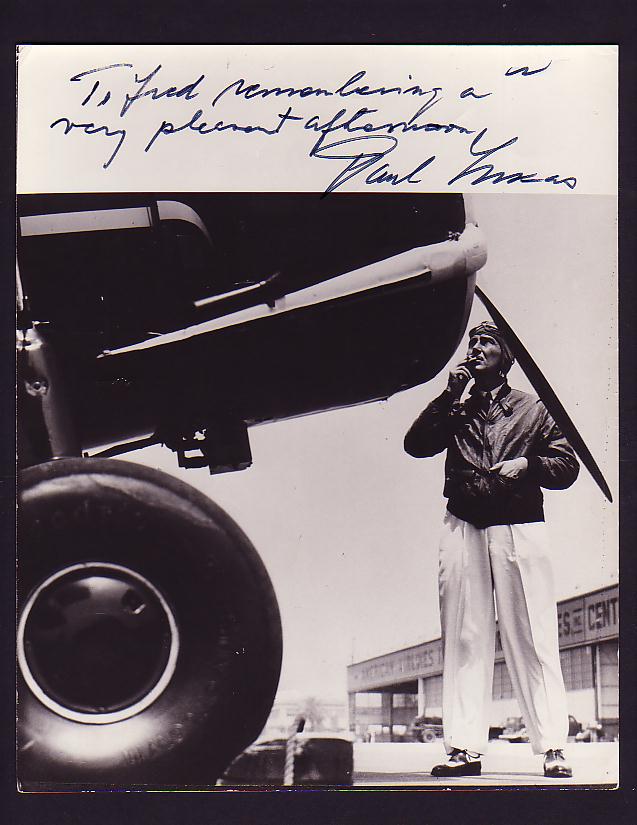 To Fred remembering a
very pleasant afternoon
Paul Lukas
AMERICAN AIRLINES INC
ES INC CENT